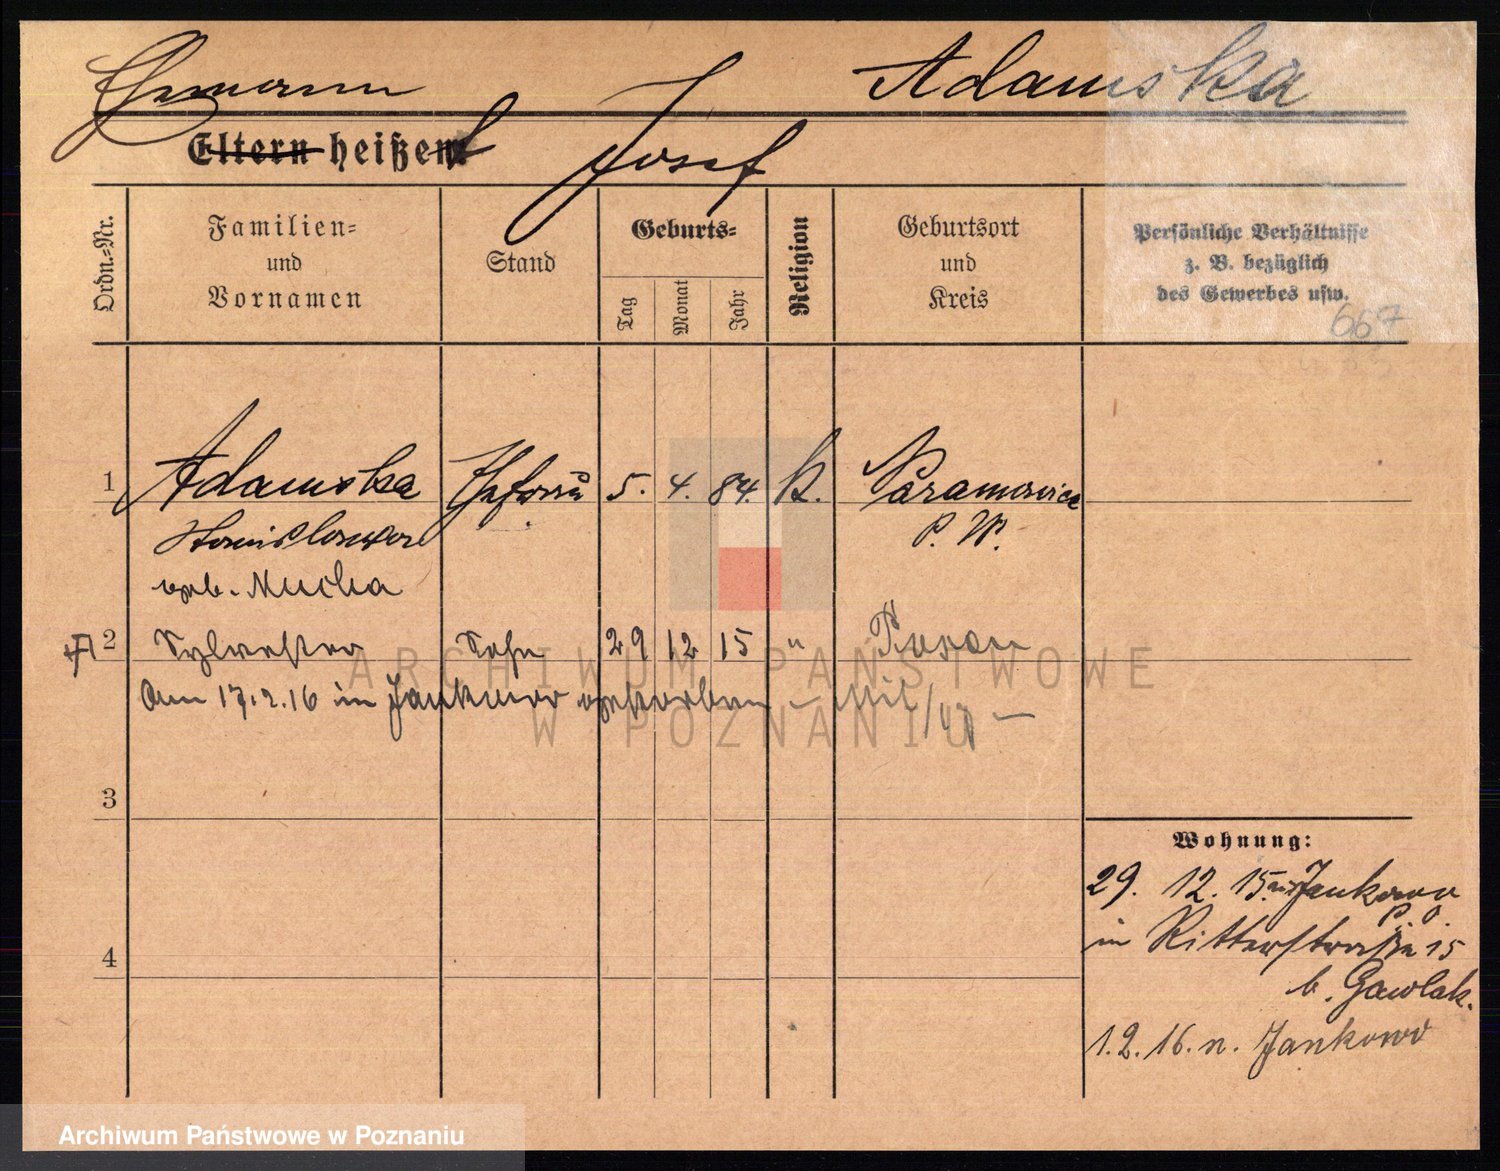 Ehemann Adamska
Eltern heißen: Josef
Ordn.-Nr.
Familien-
und
Vornamen
Stand
Geburts-
Tag
Monat
Jahr
Religion
Geburtsort
und
Kreis
Persönliche Verhältnisse
z. B. bezüglich
des Gewerbes usw.
667
1 Adamska Ehefrau 5. 4. 84. K.
Stanislawa P. W.
geb. Mucha
2 Sylvester Sohn 29 12 15 " Posen
Am 17.2.16 in Jankowo gestorben –
3
4
Wohnung:
29. 12. 15. aus Jankowo
P. O.
in Ritterstraße 15
b. Gawlak.
1.2.16. n. Jankowo
ARCHIWUM PAŃSTWOWE
W POZNANIU
Archiwum Państwowe w Poznaniu